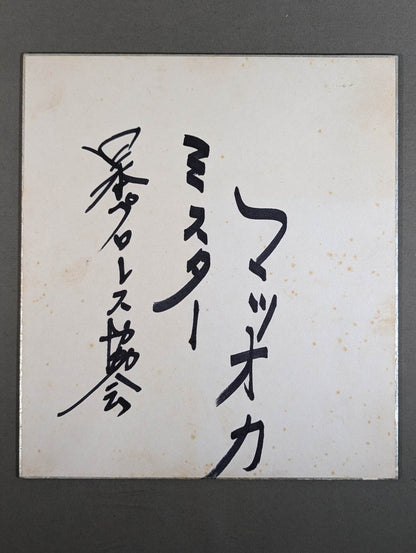 日本プロレス協会
ミスター
マツオカ